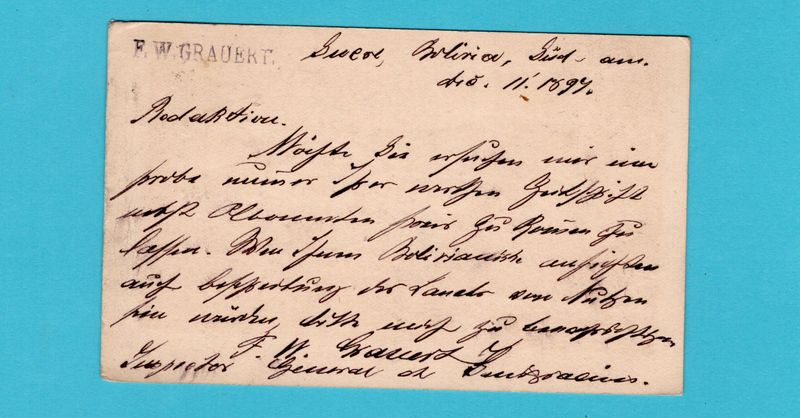 F. W. GRAUERT.
Sucre, Bolivia, Süd-am.
dis. 11. 1897.
Redaktion.
Möchte Sie ersuchen mir eine
probe numer Ihrer werthen Zeitschrift
nebst Abonnenten preis zu kommen zu
lassen. Wen Ihnen Bolivianische ansichten
auch beschreibung des Landes von Nutzen
sein würden bitte mich zu benachrichtigen
F. W. Grauert
Inspector General de